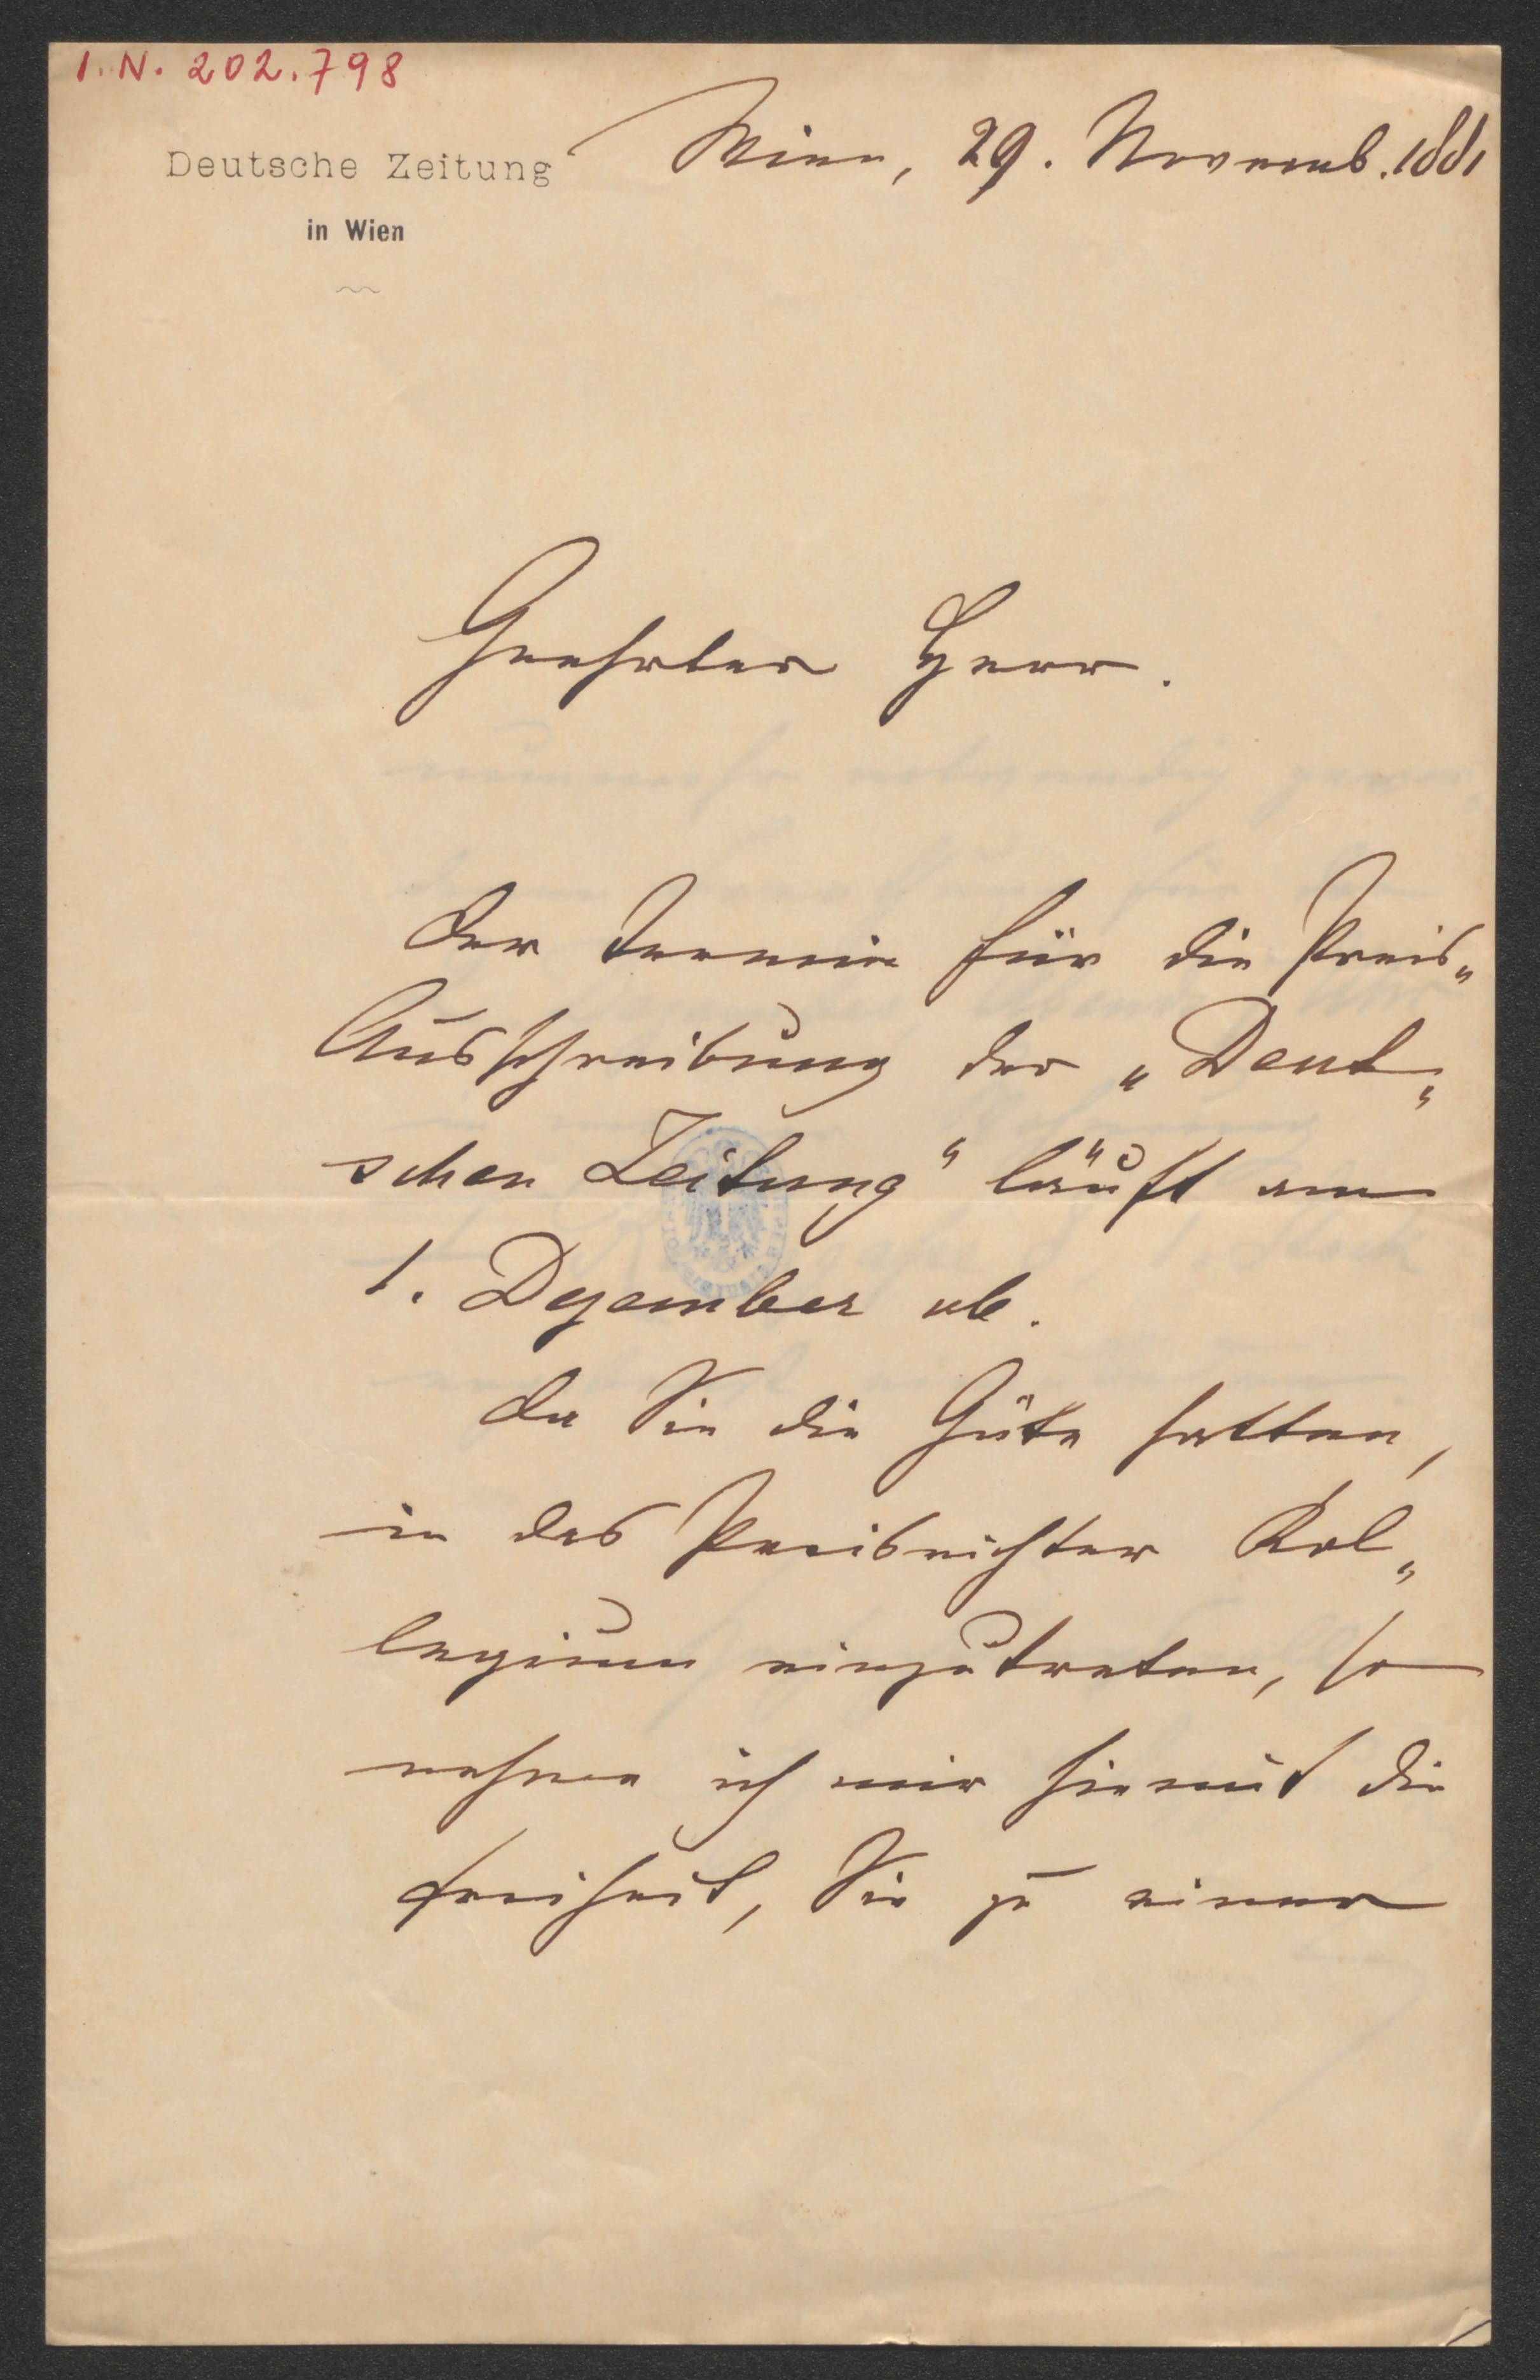 I. N. 202.798
Deutsche Zeitung
in Wien
Wien, 29. Novemb. 1881
Geehrter Herr.
Der Termin für die Preis„
Ausschreibung der „Deut„
schen Zeitung“ läuft am
1. Dezember ab.
Da Sie die Güte hatten,
in das Preisrichter Kol„
legium einzutreten, so
nehme ich mir hiemit die
Freiheit, Sie zu einer